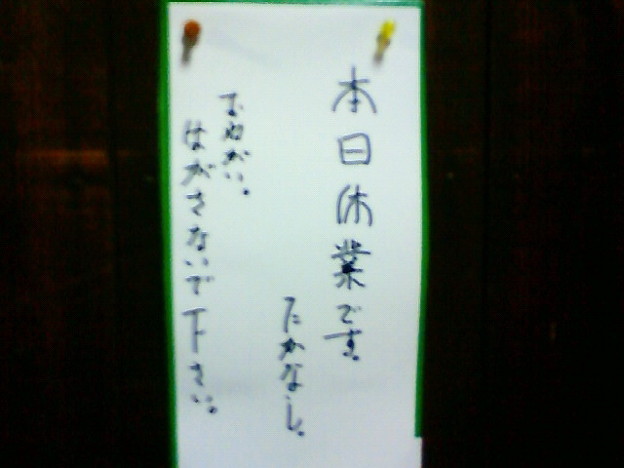 本日休業です。
たかなし。
おねがい。
はがさないで下さい。